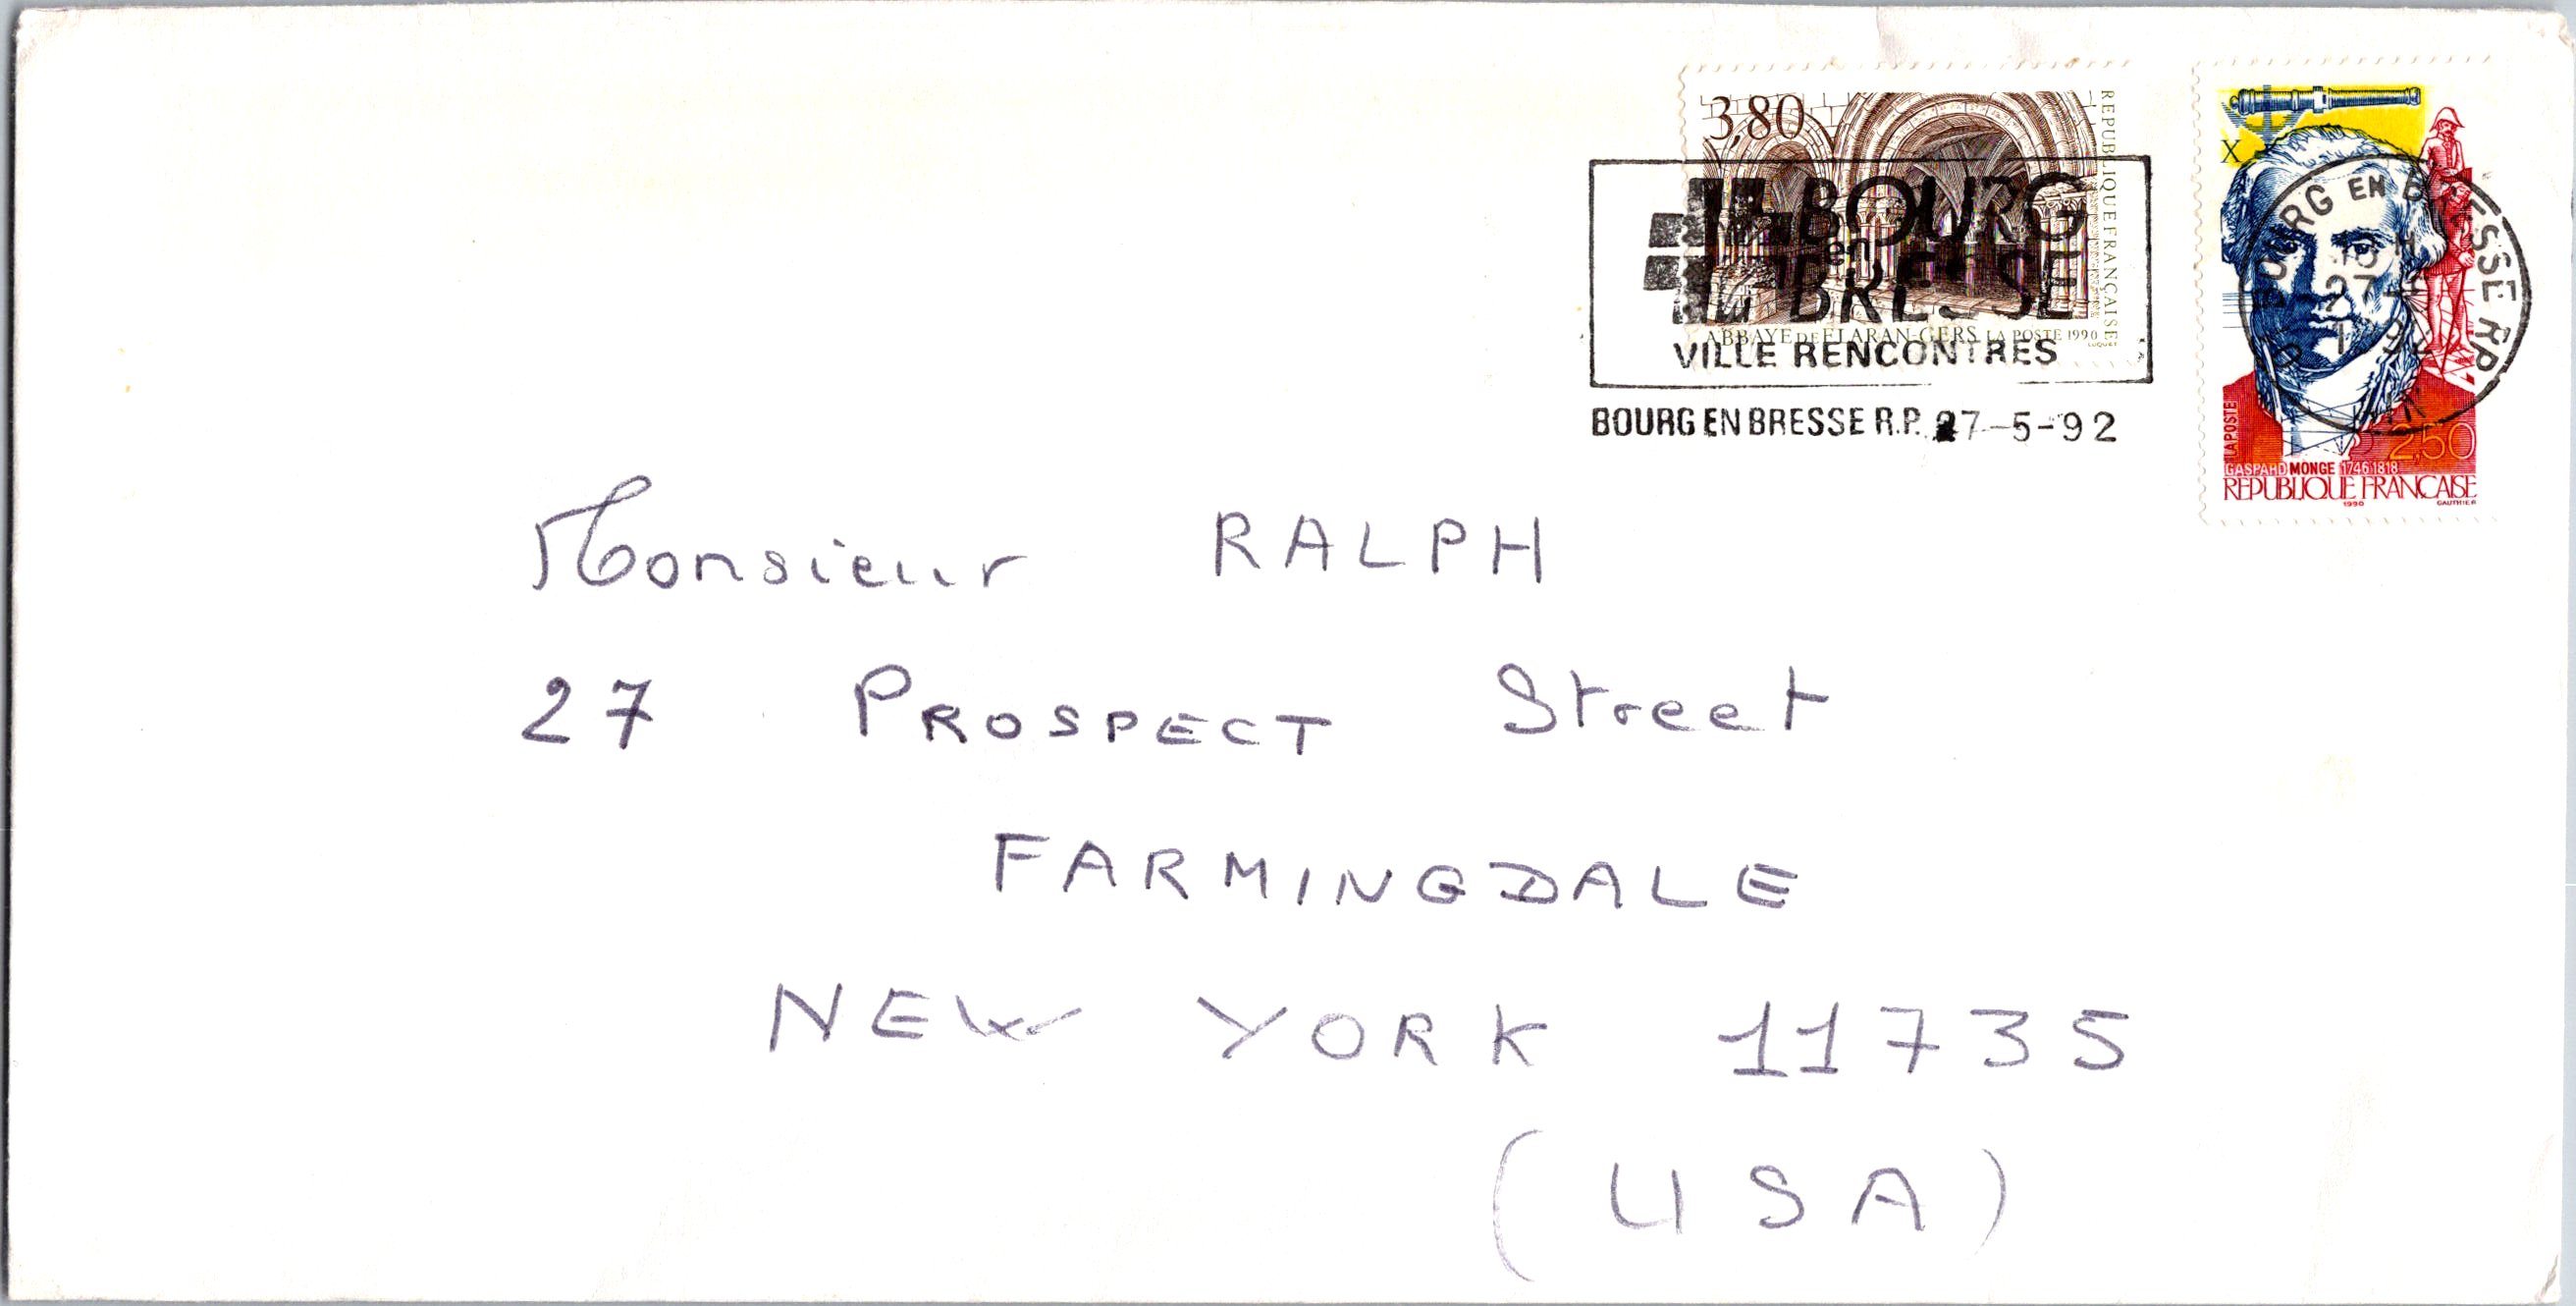 3,80
REPUBLIQUE FRANÇAISE
BOURG
en
BRESSE
ABBAYE DE FLARAN-GERS LA POSTE 1990
LUQUET
VILLE RENCONTRES
BOURG EN BRESSE R.P. 27-5-92
X
BOURG EN BRESSE R.P.
27
AIN
LA POSTE
2,50
GASPARD MONGE 1746 1818
REPUBLIQUE FRANÇAISE
1990
GAUTHIER
Monsieur RALPH
27 PROSPECT Street
FARMINGDALE
NEW YORK 11735
(USA)